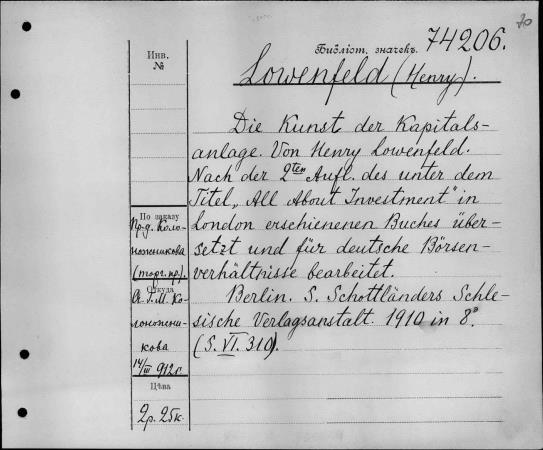 70
Библіот. значекъ. 74206.
Инв.
№
Lowenfeld (Henry).
Die Kunst der Kapitals-
anlage. Von Henry Lowenfeld.
Nach der 2ten Aufl. des unter dem
Titel „All About Investment" in
London erschienenen Buches über-
setzt und für deutsche Börsen-
verhältnisse bearbeitet.
Berlin. S. Schottländers Schle-
sische Verlagsanstalt. 1910 in 8°.
(S. VI. 310).
По заказу
Пр-д. Коло-
ножникова
(торг. пр.).
Откуда
Ко-
лоножни-
кова
14/III 912 г.
Цѣна
2 р. 25 к.